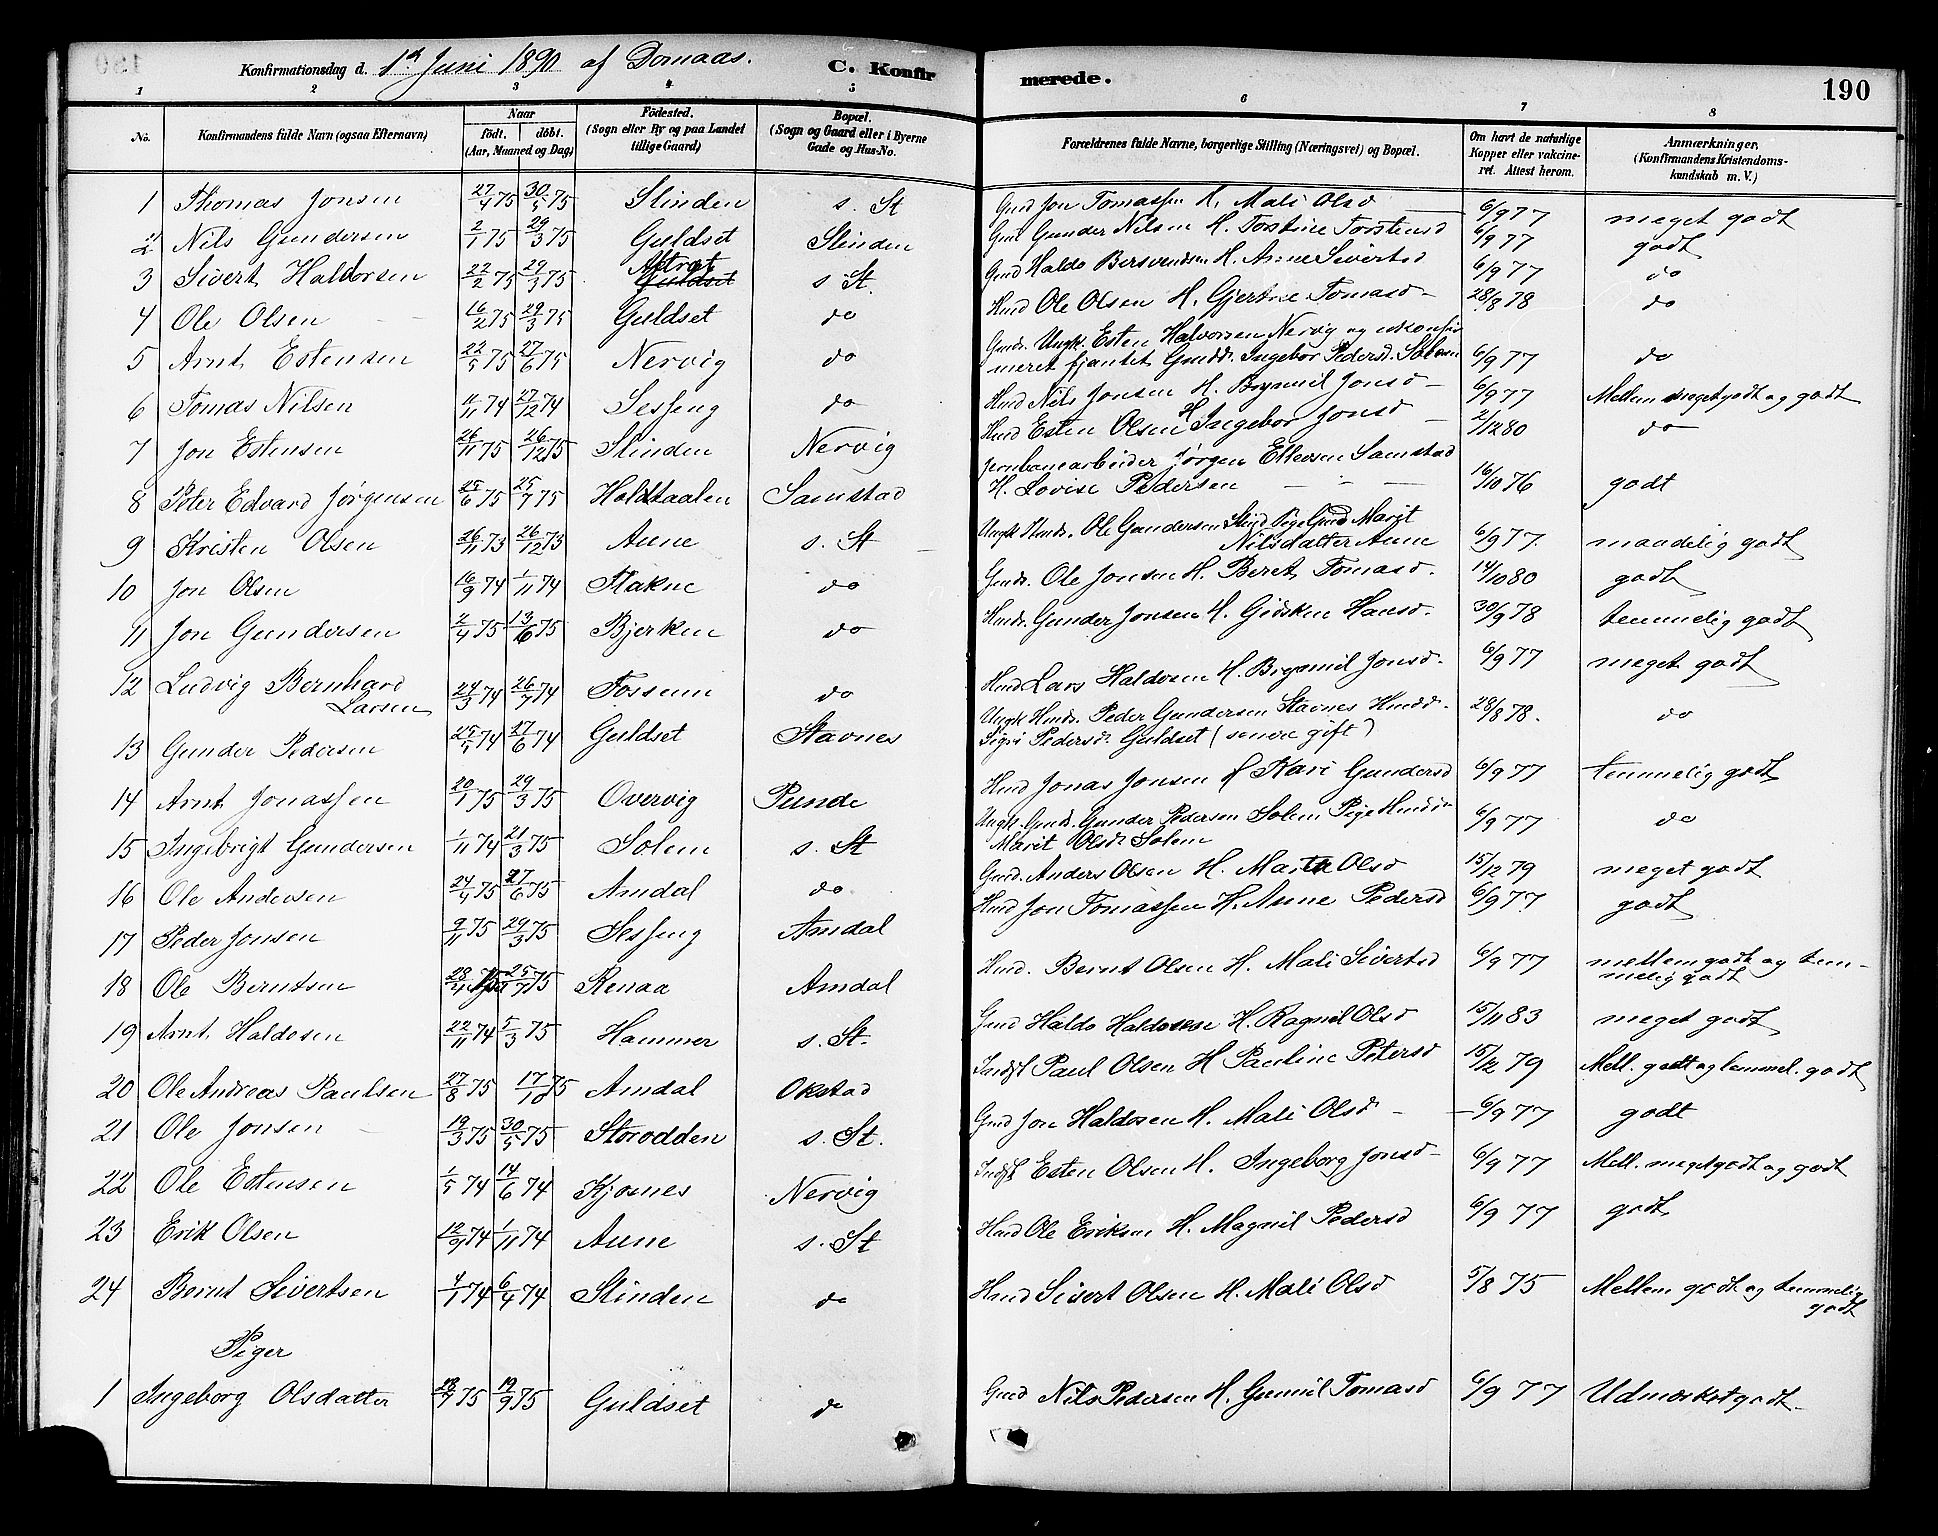 Konfirmationsdag d. 1ste Juni 1890 af Domaas. C. Konfirmerede. 190
1 2 3 4 5 6 7 8
No. Konfirmandens fulde Navn (ogsaa Efternavn) Naar födt. döbt. (Aar, Maaned og Dag) Födested. (Sogn eller By og paa Landet tillige Gaard) Bopæl. (Sogn og Gaard eller i Byerne Gade og Hus-No. Forældrenes fulde Navne, borgerlige Stilling (Næringsvei) og Bopæl. Om havt de naturlige Kopper eller vakcineret. Attest herom. Anmærkninger, (Konfirmandens Kristendomskundskab m. V.)
1 Thomas Jonsen 27/4 75 30/5 75 Slinden s. St Gmd Jon Tomassen H. Mali Olsd 6/9 77 meget godt
2 Nils Gundersen 2/1 75 29/3 75 Guldset Slinden Gmd Gunder Nilsen H. Torstine Torstensd 6/9 77 godt
3 Sivert Haldorsen 22/2 75 29/3 75 Aftret Guldset s St. Gmd Haldo Bersvendsen H. Anne Sivertsd 6/9 77 do
4 Ole Olsen 16/2 75 29/3 75 Guldset do Hmd Ole Olsen H. Gjertrue Tomasd 28/8 78 do
5 Arnt Estensen 22/5 75 27/6 75 Nervig do Gmds. Ungk. Esten Halvorsen Nervig og ukonfirmeret fjantet Gmdd. Ingebor Pedersd. Solem 6/9 77 do
6 Tomas Nilsen 11/11 74 27/12 74 Sesseng do Hmd Nils Jonsen H. Brynnil Jonsd 6/9 77 Mellem meget godt og godt
7 Jon Estensen 26/11 75 26/12 75 Slinden Nervig Hmd Esten Olsen H. Ingebor Jonsd 2/12 80 do
8 Peter Edvard Jørgensen 25/6 75 25/7 75 Holdtaalen Samstad Jernbanearbeider Jørgen Ellevsen Samstad H. Lovise Pedersen 16/10 76 godt
9 Kristen Olsen 26/11 73 26/12 73 Aune s. St Ungk Hmds. Ole Gundersen Slind Pige Gmd Marit Nilsdatter Aune 6/9 77. maadelig godt
10 Jon Olsen 16/9 74 1/11 74 Flakne do Gmds. Ole Jonsen H. Beret Tomasd. 14/10 80 godt
11 Jon Gundersen 2/4 75 13/6 75 Bjerken do Hmds. Gunder Jonsen H. Gidsken Hansd. 30/9 78 temmelig godt
12 Ludvig Bernhard Larsen 24/3 74 26/7 74 Fossum do Hmd Lars Haldosen H. Brynnil Jonsd. 6/9 77 meget godt
13 Gunder Pedersen 25/5 74 27/6 74 Guldset Stavnes Ungk Hmds. Peder Gundersen Stavnes Hmdd. Sigri Pedersd. Guldset (senere gift) 28/8 78. do
14 Arnt Jonassen 20/1 75 29/3 75 Overvig Punde Hmd Jonas Jonsen H Kari Gundersd 6/9 77 temmelig godt
15 Ingebrigt Gundersen 1/11 74 21/3 75 Solem s. St Ungk. Gmds. Gunder Pedersen Solem Pige Hmdd Marit Olsd. Solem 6/9 77 do
16 Ole Andersen 24/4 75 27/6 75 Amdal do Gmd. Anders Olsen H. Marta Olsd 15/12 79 meget godt
17 Peder Jonsen 9/11 75 29/3 75 Sesseng Amdal Hmd Jon Tomassen H. Anne Pedersd 6/9 77 godt
18 Ole Berntsen 28/4 75 25/7 75 Renaa Amdal Hmd. Bernt Olsen H. Mali Sivertsd 6/9 77 mellem godt og temmelig godt
19 Arnt Haldosen 22/11 74 5/3 75 Hammer s. St. Gmd Haldo Haldosen H. Ragnil Olsd 15/11 83 meget godt
20 Ole Andreas Paulsen 27/8 75 17/10 75 Amdal Okstad Indst Paul Olsen H Pauline Petersd 15/12 79 Mell. godt og temmel. godt
21 Ole Jonsen 19/3 75 30/5 75 Storodden s. St. Gmd Jon Haldosen H. Mali Olsd 6/9 77 godt
22 Ole Estensen 1/5 74 14/6 74 Kjosnes Nervig Indst Esten Olsen H. Ingeborg Jonsd 6/9 77 Mell. meget godt og godt
23 Erik Olsen 12/9 74 1/11 74 Aune s. St Hmd Ole Eriksen H. Magnil Pedersd 6/9 77 godt
24 Bernt Sivertsen 4/1 74 6/4 74 Slinden do Hmd Sivert Olsen H. Mali Olsd 5/8 75 Mellem godt og temmelig godt
Piger
1 Ingeborg Olsdatter 28/7 75 19/9 75 Guldset do Gmd Nils Pedersen H. Gunnil Tomasd 6/9 77 Udmærket godt